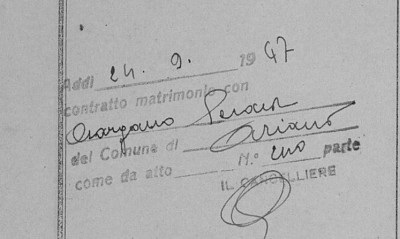 Addì 24. 9. 1947
contratto matrimonio con
del Comune di Ariano
come da atto N.º uno parte
IL CANCELLIERE